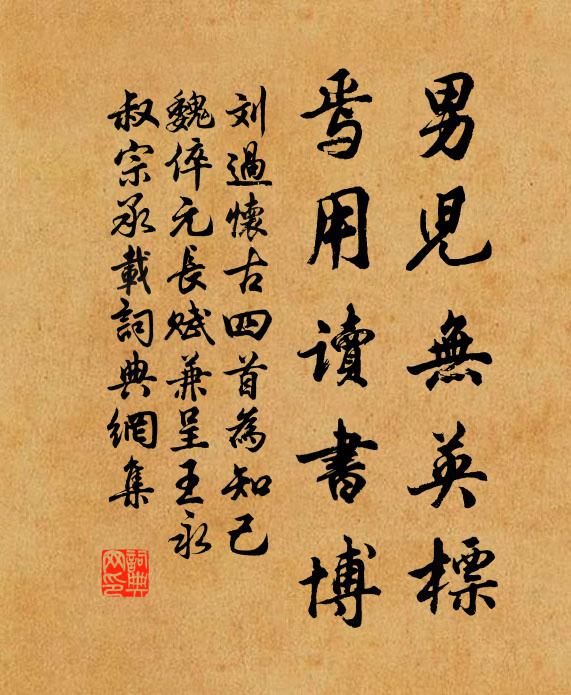 男兒無英標
焉用讀書博
刘過懷古四首為知己
魏倅元長赋兼呈王永
叔宗丞載詞典網集
詞典网印